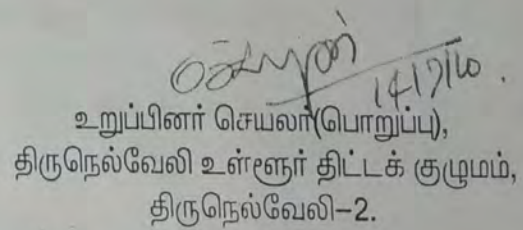 14/7/10.
உறுப்பினர் செயலர்(பொறுப்பு),
திருநெல்வேலி உள்ளூர் திட்டக் குழுமம்,
திருநெல்வேலி-2.